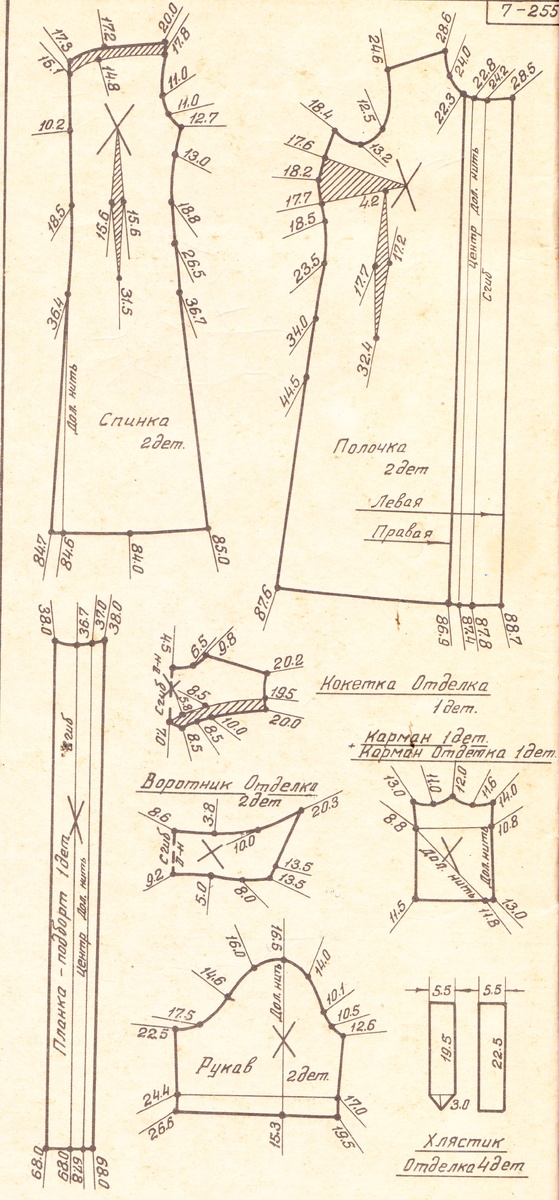 7-255
17.3
17.2
20.0
16.7
17.8
14.8
11.0
10.2
11.0
12.7
13.0
18.5
15.6
15.6
18.8
26.5
36.4
31.5
36.7
Дол. нить
Спинка
2дет.
84.7
84.6
84.0
85.0
28.6
24.6
24.0
22.8
24.2
28.5
22.3
18.4
12.5
13.2
17.6
18.2
17.7
4.2
18.5
17.2
23.5
17.7
34.0
32.4
44.5
центр Дол. нить
Сгиб
Полочка
2дет
Левая
Правая
87.6
86.9
87.4
87.8
88.7
38.0
36.7
37.0
38.0
Сгиб
Планка - подборт 1дет
центр Дол. нить
68.0
68.0
67.8
68.0
4.5
6.5
9.8
20.2
Сгиб Д-н
5.8
8.5
19.5
7.0
8.5
8.5
10.0
20.0
Кокетка Отделка
1дет.
Воротник Отделка
2дет
8.6
3.8
10.0
20.3
Сгиб
Д-н
9.2
5.0
8.0
13.5
13.5
Карман 1дет.
+ Карман Отделка 1дет.
13.0
11.0
12.0
11.6
14.0
8.8
10.8
Дол. нить
Дол. нить
11.5
11.8
13.0
16.0
16.5
14.6
14.0
17.5
10.1
22.5
10.5
12.6
Дол. нить
Рукав
2дет.
24.4
17.0
26.6
15.3
19.5
5.5
5.5
19.5
22.5
3.0
Хлястик
Отделка 4дет